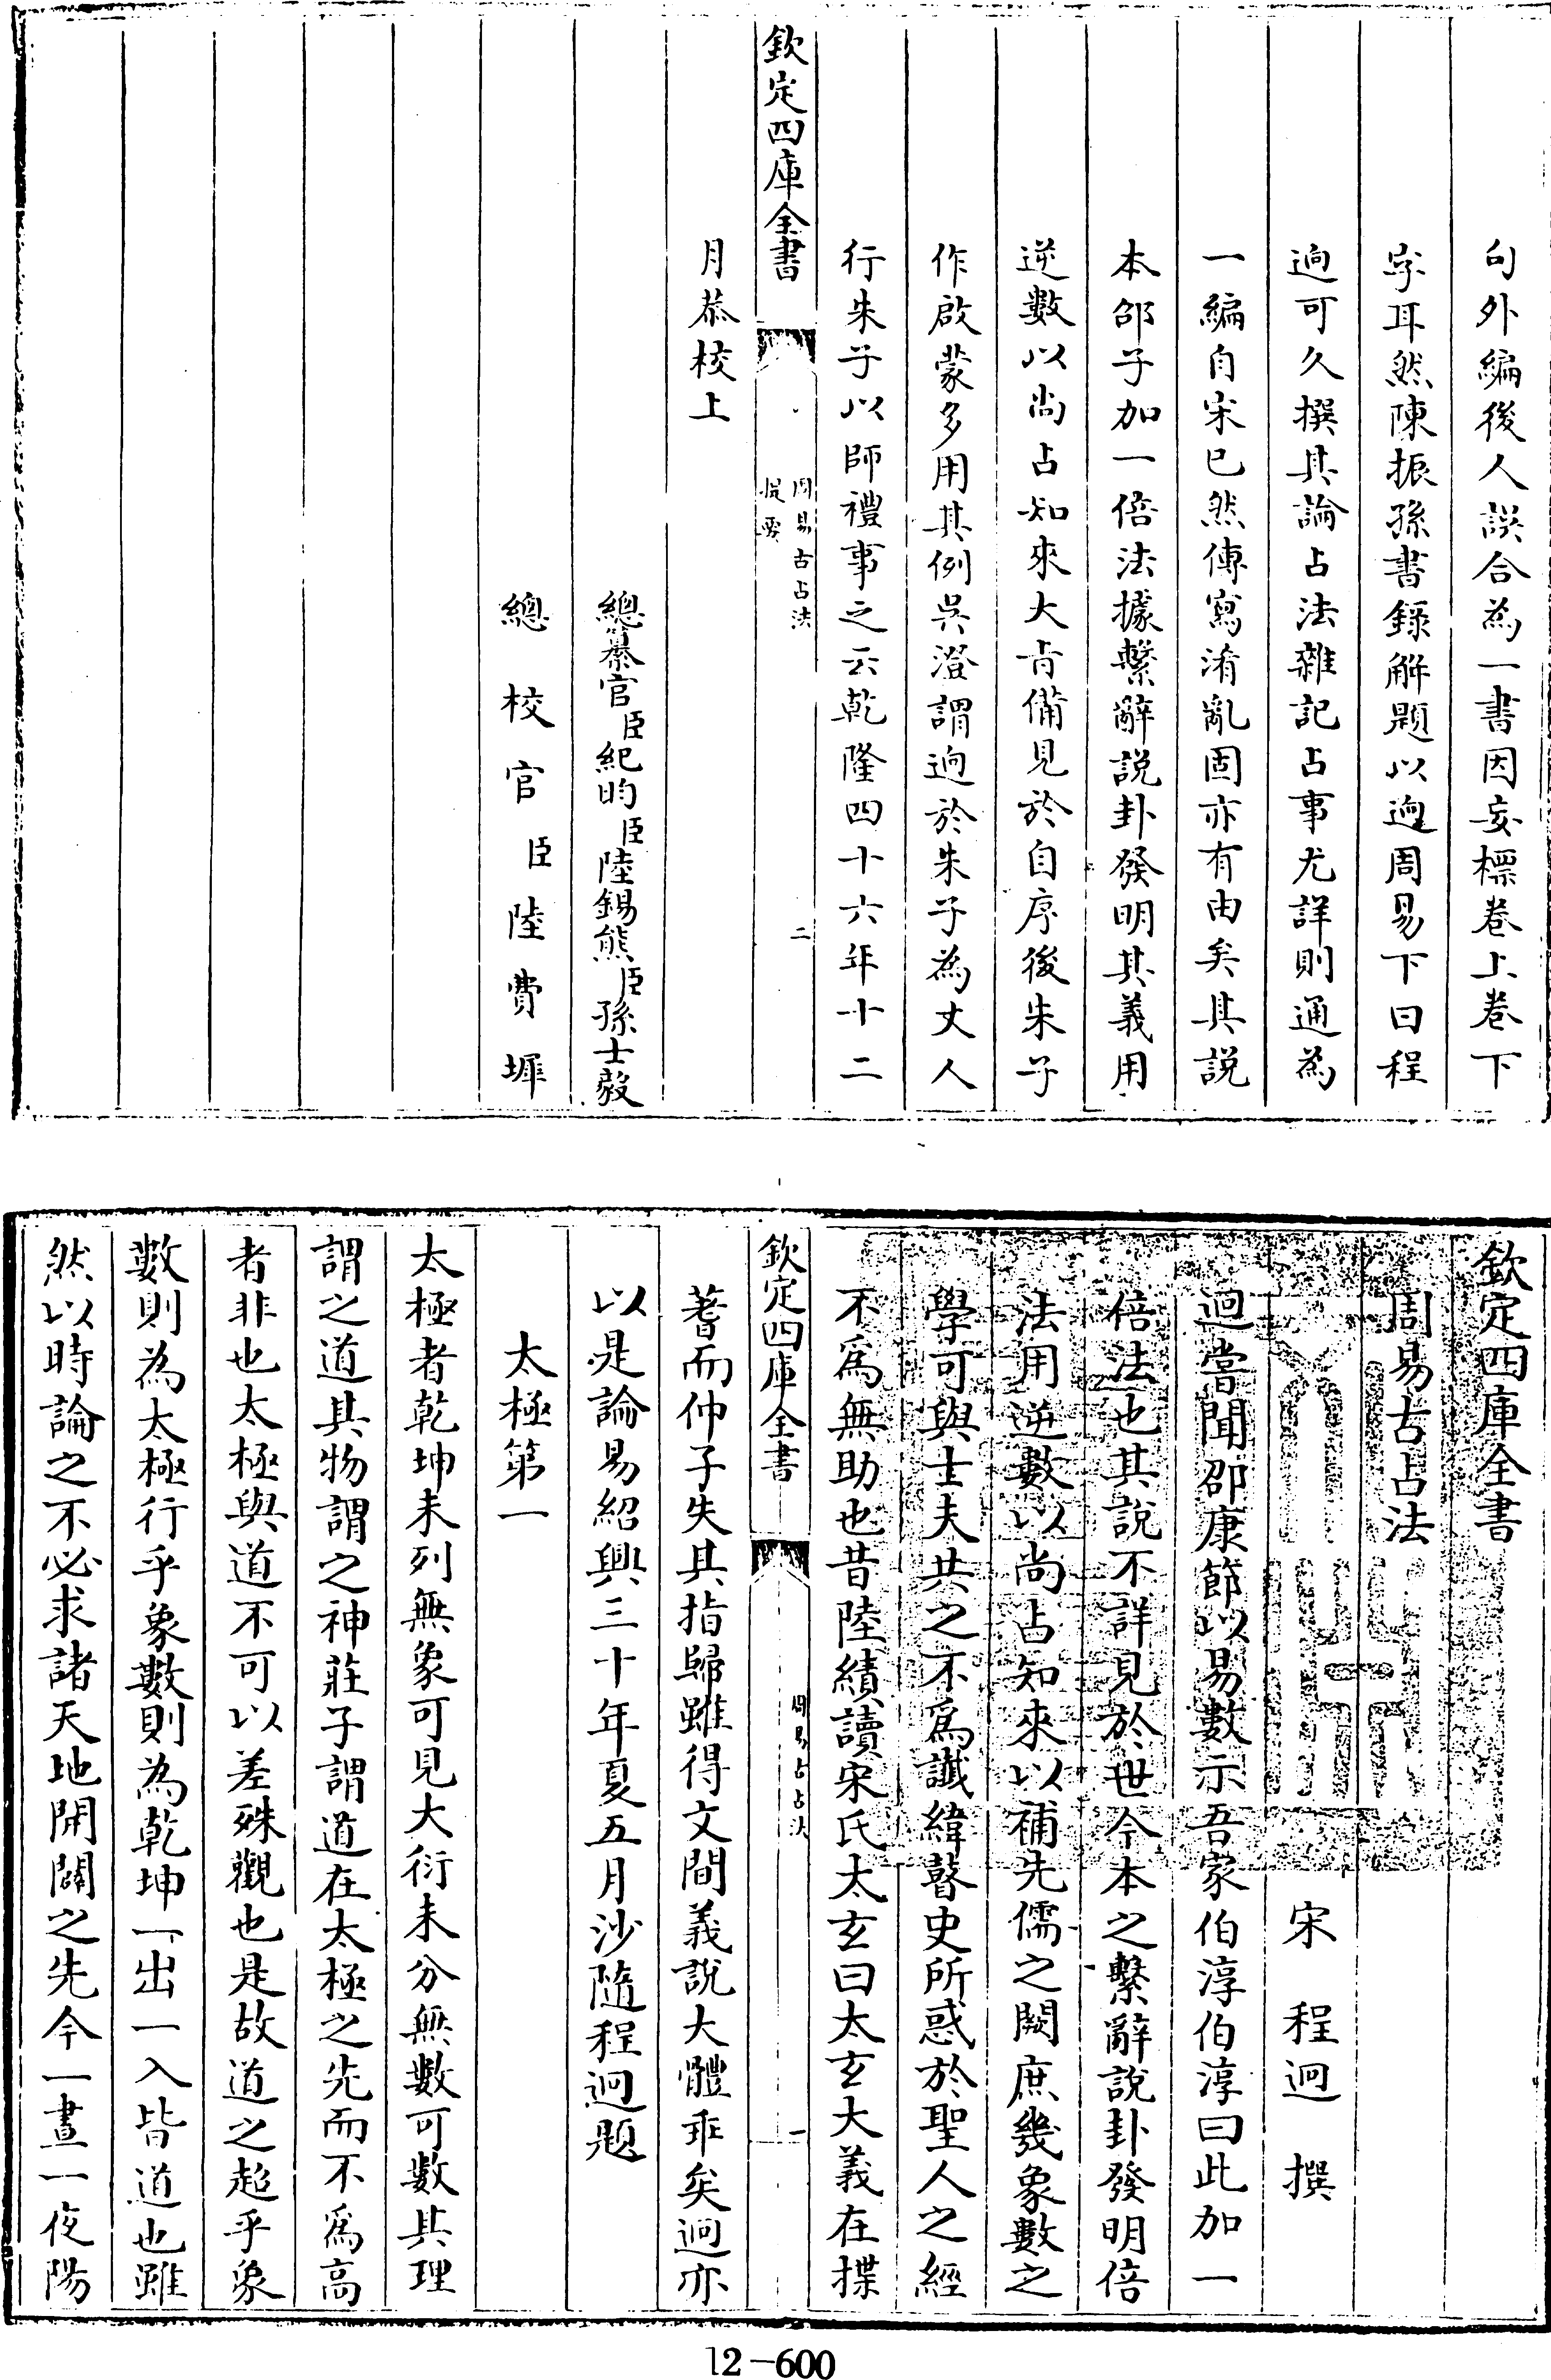 句外編後人誤合為一書因妄標卷上卷下
字耳然陳振孫書錄解題以逈周易下曰程
逈可久撰其論占法雜記占事尤詳則通為
一編自宋已然傳寫淆亂固亦有由矣其説
本邵子加一倍法據繫辭説卦發明其義用
逆數以尚占知來大㫖備見於自序後朱子
作啟蒙多用其例吳澄謂逈於朱子為丈人
行朱子以師禮事之云乾隆四十六年十二
欽定四庫全書
周易古占法
提要
二
月恭校上
總纂官臣紀昀臣陸錫熊臣孫士毅
總校官臣陸費墀
欽定四庫全書
周易古占法
宋 程迥 撰
迥嘗聞邵康節以易數示吾家伯淳伯淳曰此加一
倍法也其說不詳見於世今本之繫辭說卦發明倍
法用逆數以尚占知來以補先儒之闕庶幾象數之
學可與士夫共之不爲讖緯瞽史所惑於聖人之經
不爲無助也昔陸績讀宋氏太玄曰太玄大義在揲
欽定四庫全書
周易古占法
一
蓍而仲子失其指歸雖得文間義說大體乖矣迥亦
以是論易紹興三十年夏五月沙隨程迥題
太極第一
太極者乾坤未列無象可見大衍未分無數可數其理
謂之道其物謂之神莊子謂道在太極之先而不爲高
者非也太極與道不可以差殊觀也是故道之超乎象
數則為太極行乎象數則為乾坤一出一入皆道也雖
然以時論之不必求諸天地開闢之先今一晝一夜陽
12-600